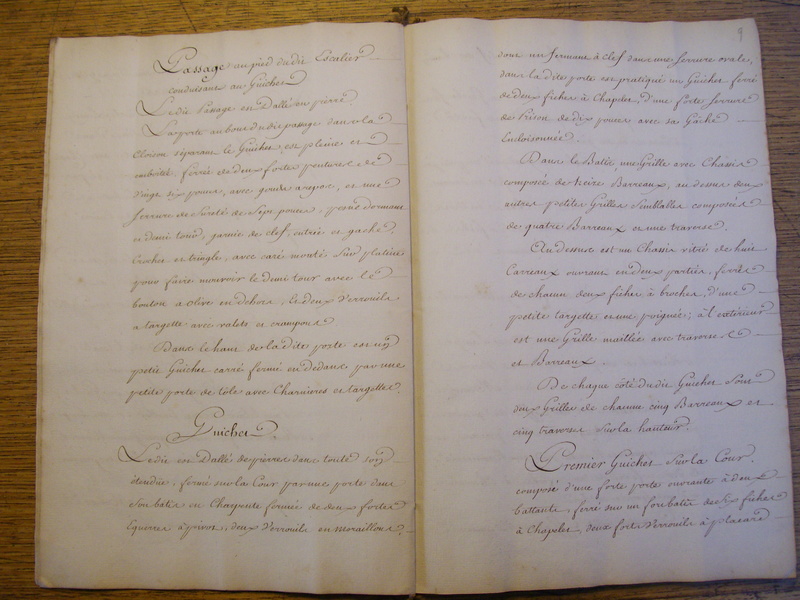 Passage au pied dudit Escalier
conduisant au Guichet
Ledit Passage est Dallé en pierre.
La porte au bout dudit passage dans la
Cloison séparant le Guichet, est pleine et
emboité, ferrée de deux fortes pentures de
Vingt six pouces, avec gonds a repos, et une
ferrure de Sureté de Sept pouces, pesne dormant
et demi tour, garnie de clef, entrée et gache,
Crochet et tringle, avec caré monté sur platine
pour faire mouvoir le demi tour avec le
bouton a olive en dehors, et deux Verrouils
a targette avec valets et crampons
Dans le haut de la dite porte est un
petit Guichet carré fermé en dedans par une
petite porte de tôle avec Charnieres et targettes.
Guichet.
Ledit est Dallé de pierres dans toute son
étendue, fermé sur la Cour par une porte dans
son batis en Charpente fermée de deux fortes
Equerres à pivot, deux Verrouils en moraillons,
9
dont un fermant à clef dans une serrure ovale,
dans la dite porte est pratiqué un Guichet ferré
de deux fiches à Chapelet, d'une forte serrure
de Prison de dix pouces avec sa Gâche
Encloisonnée.
Dans le Batis, une Grille avec Chassis
composé de treize Barreaux, au dessus deux
autres petites Grilles Semblables composées
de quatre Barreaux et une traverse.
Au dessus est un Chassis vitré de huit
Carreaux ouvrant en deux parties, ferrés
de chacun deux fiches à broches, d'une
petite targette et une poignée; à l'extérieur
est une Grille maillée avec traverses
et Barreaux.
De chaque côté dudit Guichet sont
deux Grilles de chacune cinq Barreaux et
cinq traverses sur la hauteur.
Premier Guichet sur la Cour.
composé d'une forte porte ouvrante à deux
battants, ferré sur un fort batis de six fiches
à Chapelet, deux forts Verrouils à placard